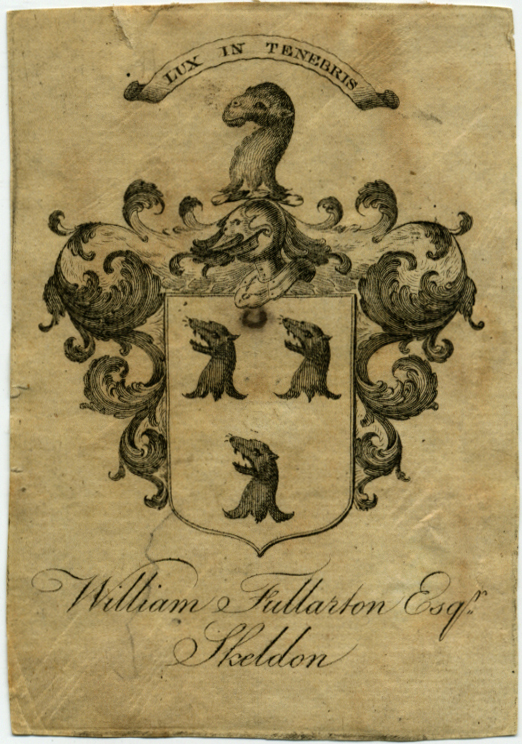 LUX IN TENEBRIS
William Fullarton Esqr.
Skeldon